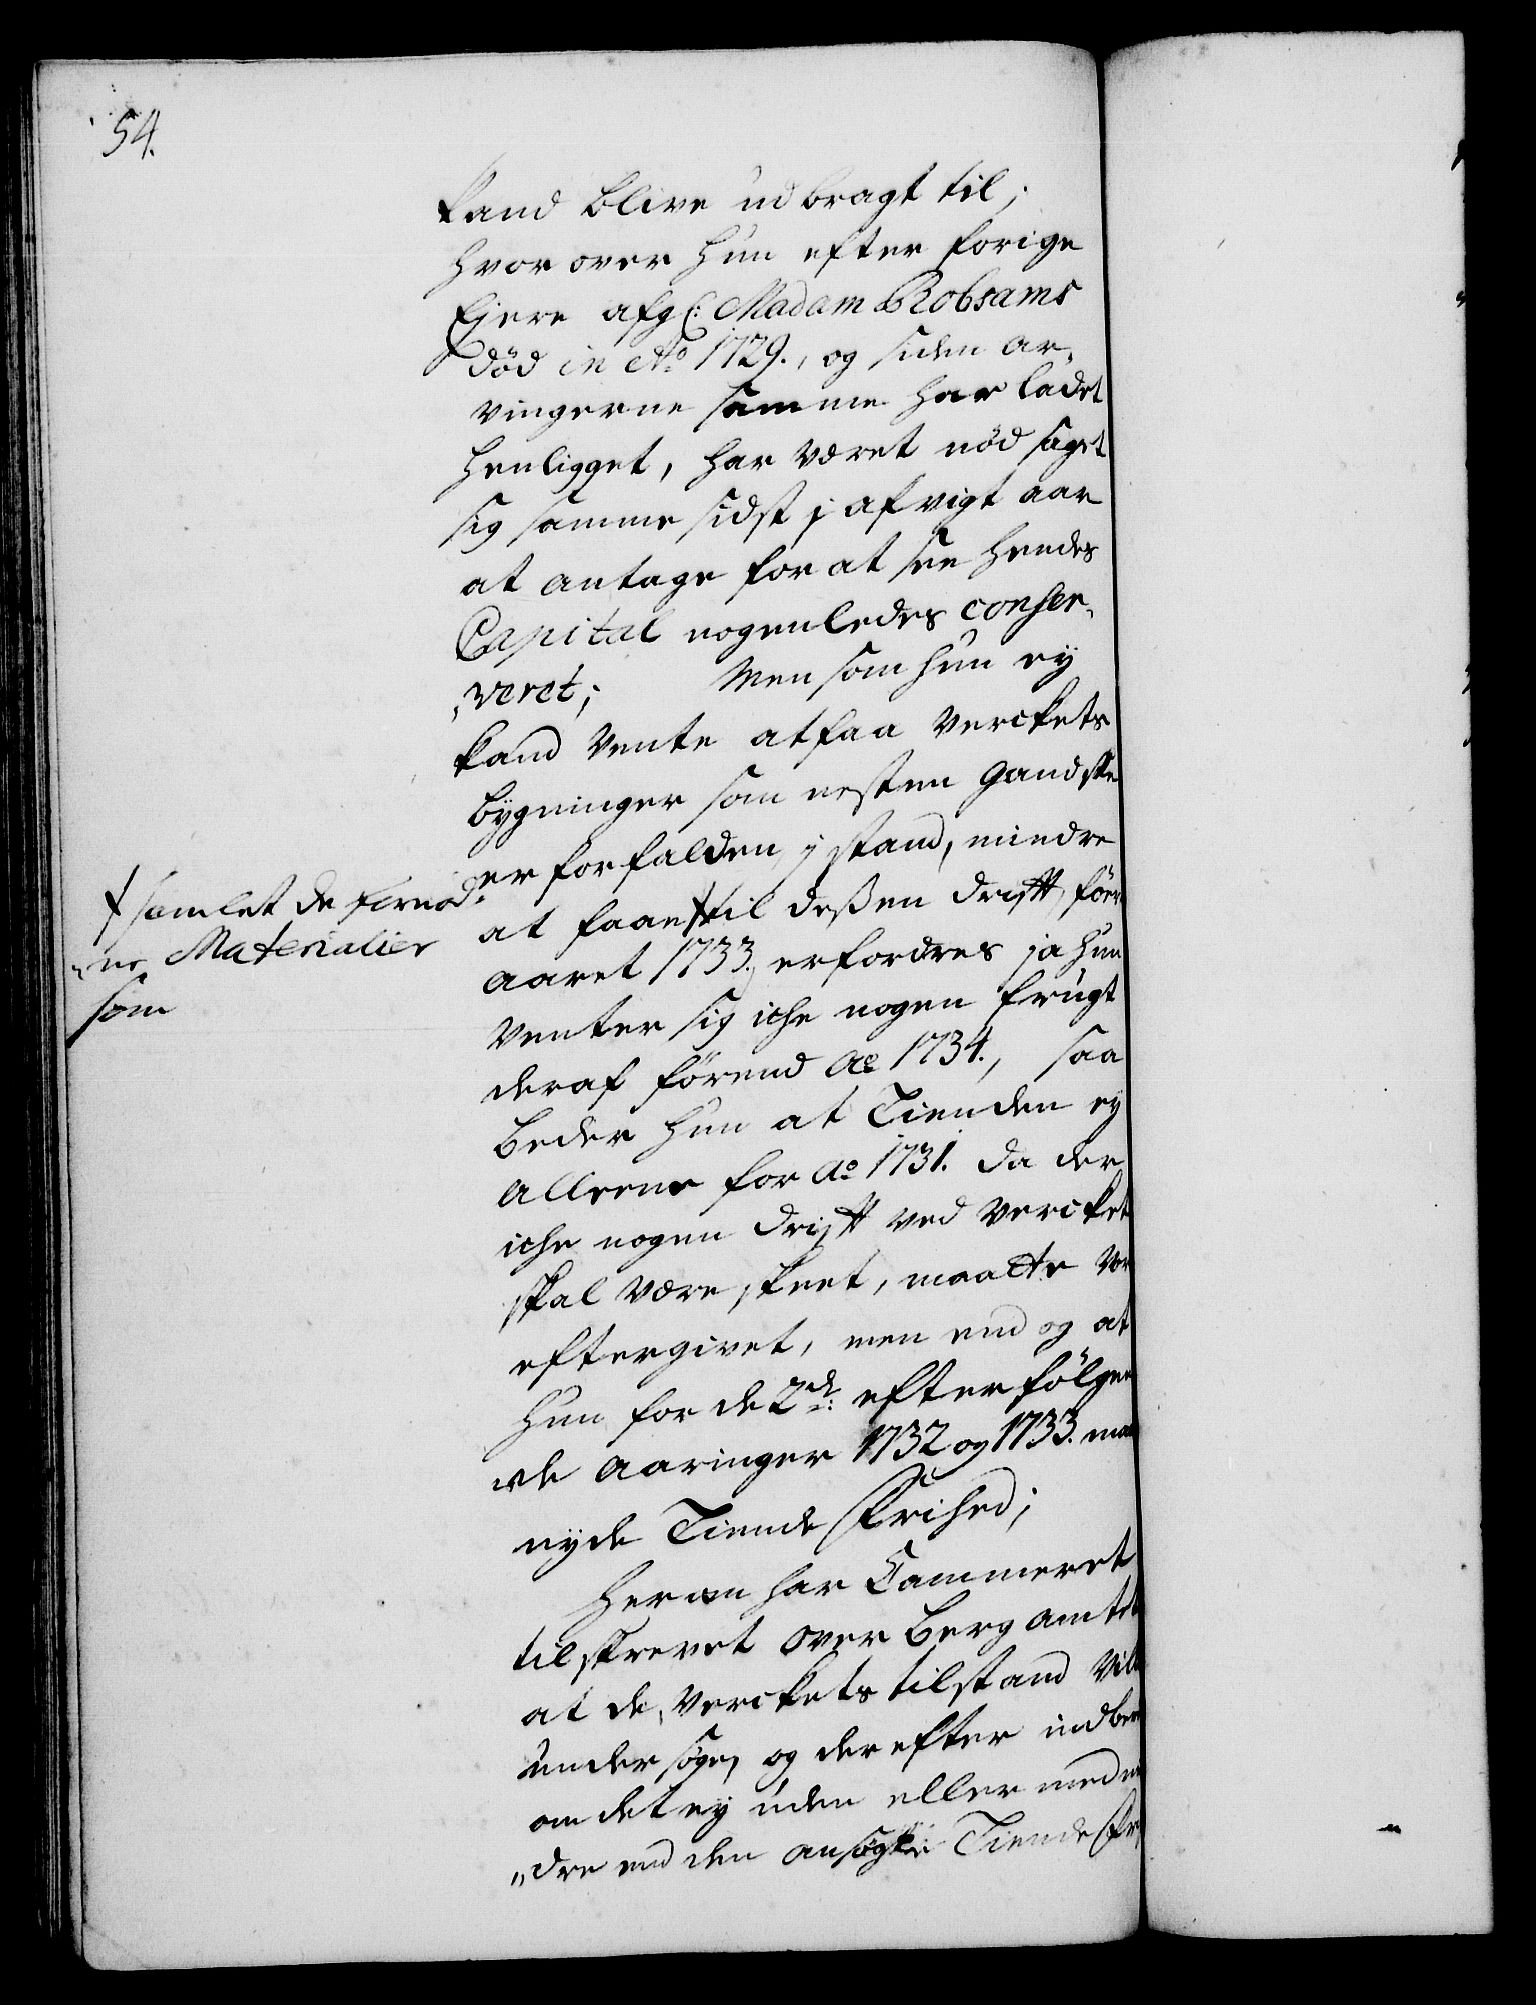 54.
kand blive udbragt til;
hvor over hun efter forige
Ejere afg: Madam Robsams
död in Ao 1729., og siden ar-
vingerne samme har ladet
henligget, har været nödsaget
sig samme sidst j afvigt aar
at antage for at see hendes
Capital nogenledes conser-
veret; Men som hun ey
kand vente at faa Verckets
bygninger som nesten gandske
er forfalden j stand, mindre
at faae † til deßen drifft, för
aaret 1733. erfordres ja hun
venter sig iche nogen frugt
deraf förend Ao 1734., saa
beder hun at Tienden ey
alleene for Ao 1731. da der
iche nogen drifft ved Vercket
skal være skeet, maatte vor
eftergivet, men end og at
hun for de 2de: efterfölgen
de aaringer 1732 og 1733. maa
nyde Tiende Frihed;
Herom har Cammeret
tilskrevet Over Berg Amtet
at de, Verckets tilstand vil
undersöge, og derefter indber
om det ey uden eller med mi
dre end den ansögte Tiende Fri
† samlet de fornöd-
ne Materialier
som